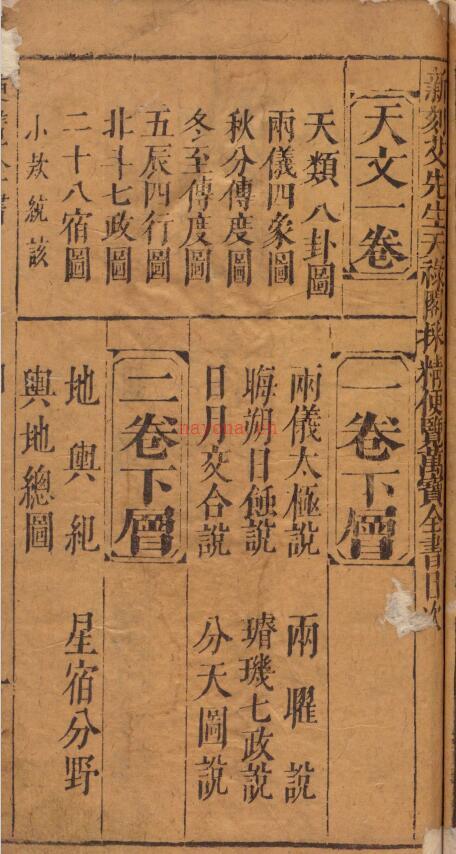 新刻艾先生天祿閣採精便覽萬寶全書目次
天文一卷
天類八卦圖
兩儀四象圖
秋分傳度圖
冬至傳度圖
五辰四行圖
北斗七政圖
二十八宿圖
小欵統該
一卷下層
兩儀太極說 兩曜說
晦朔日蝕說 璿璣七政說
日月交合說 分天圖說
二卷下層
地輿紀 星宿分野
輿地總圖